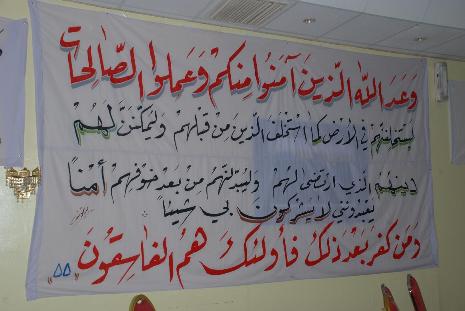 وَعَدَ اللهُ الّذينَ آمَنُوا مِنكُم وَعَمِلُوا الصَّالِحَاتِ
لَيَسْتَخْلِفَنَّهُمْ فِي الأَرْضِ كَمَا اسْتَخْلَفَ الّذينَ مِن قَبْلِهِمْ وَلَيُمَكِّنَنَّ لَهُمْ
دِينَهُمُ الذي ارْتَضَى لَهُمْ وَلَيُبَدِّلَنَّهُم مِن بَعْدِ خَوْفِهِمْ أَمْنًا
يَعْبُدُونَنِي لا يُشْرِكُونَ بِي شَيْئًا
وَمَن كَفَرَ بَعْدَ ذَلِكَ فَأُولَئِكَ هُمُ الفَاسِقُونَ «٥٥»